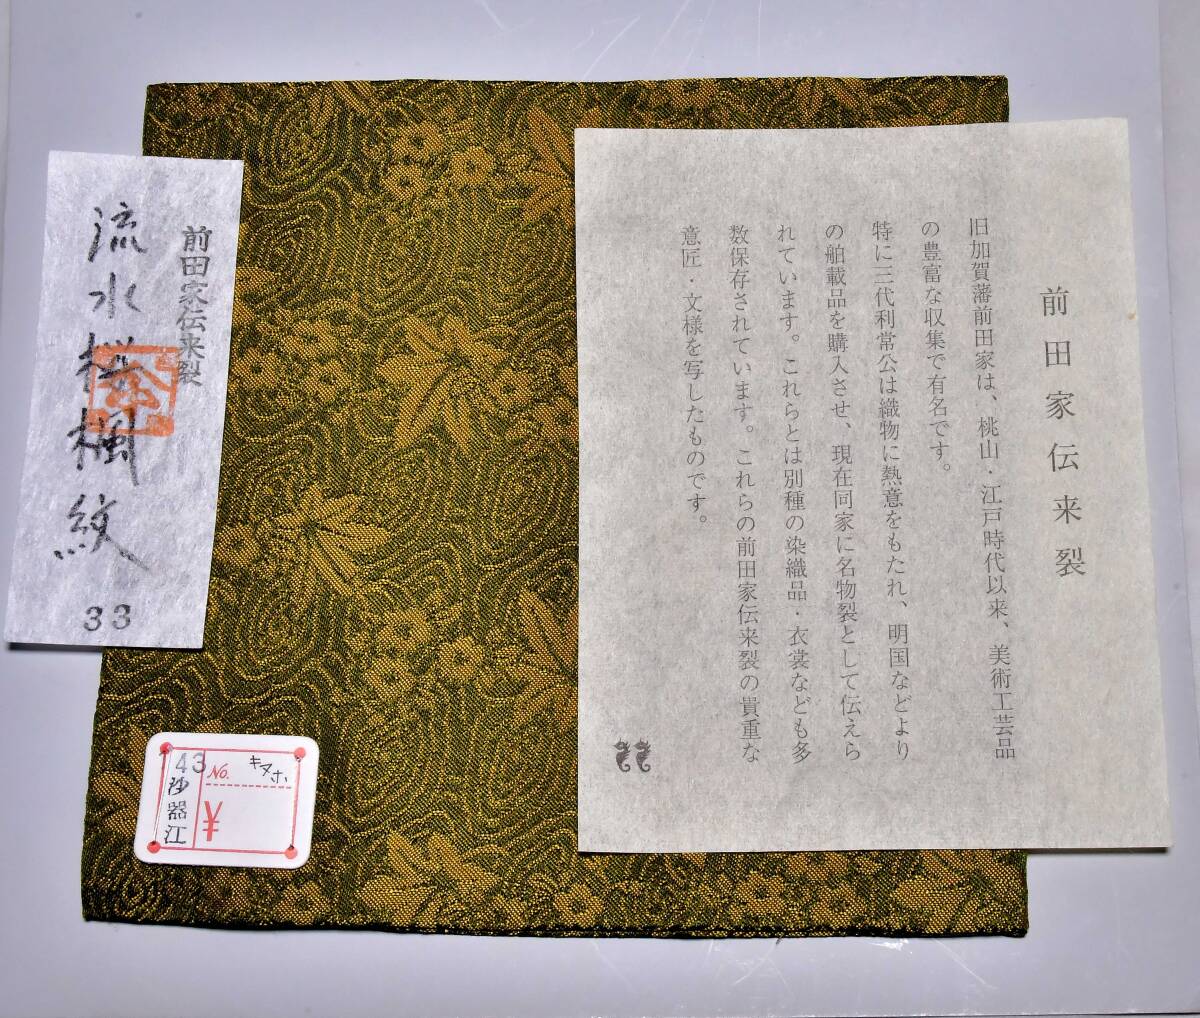 前田家伝来裂
旧加賀藩前田家は、桃山・江戸時代以来、美術工芸品
の豊富な収集で有名です。
特に三代利常公は織物に熱意をもたれ、明国などより
の舶載品を購入させ、現在同家に名物裂として伝えら
れています。これらとは別種の染織品・衣裳なども多
数保存されています。これらの前田家伝来裂の貴重な
意匠・文様を写したものです。
前田家伝来裂
流水桜楓紋
33
43
No.
キヌホ
¥